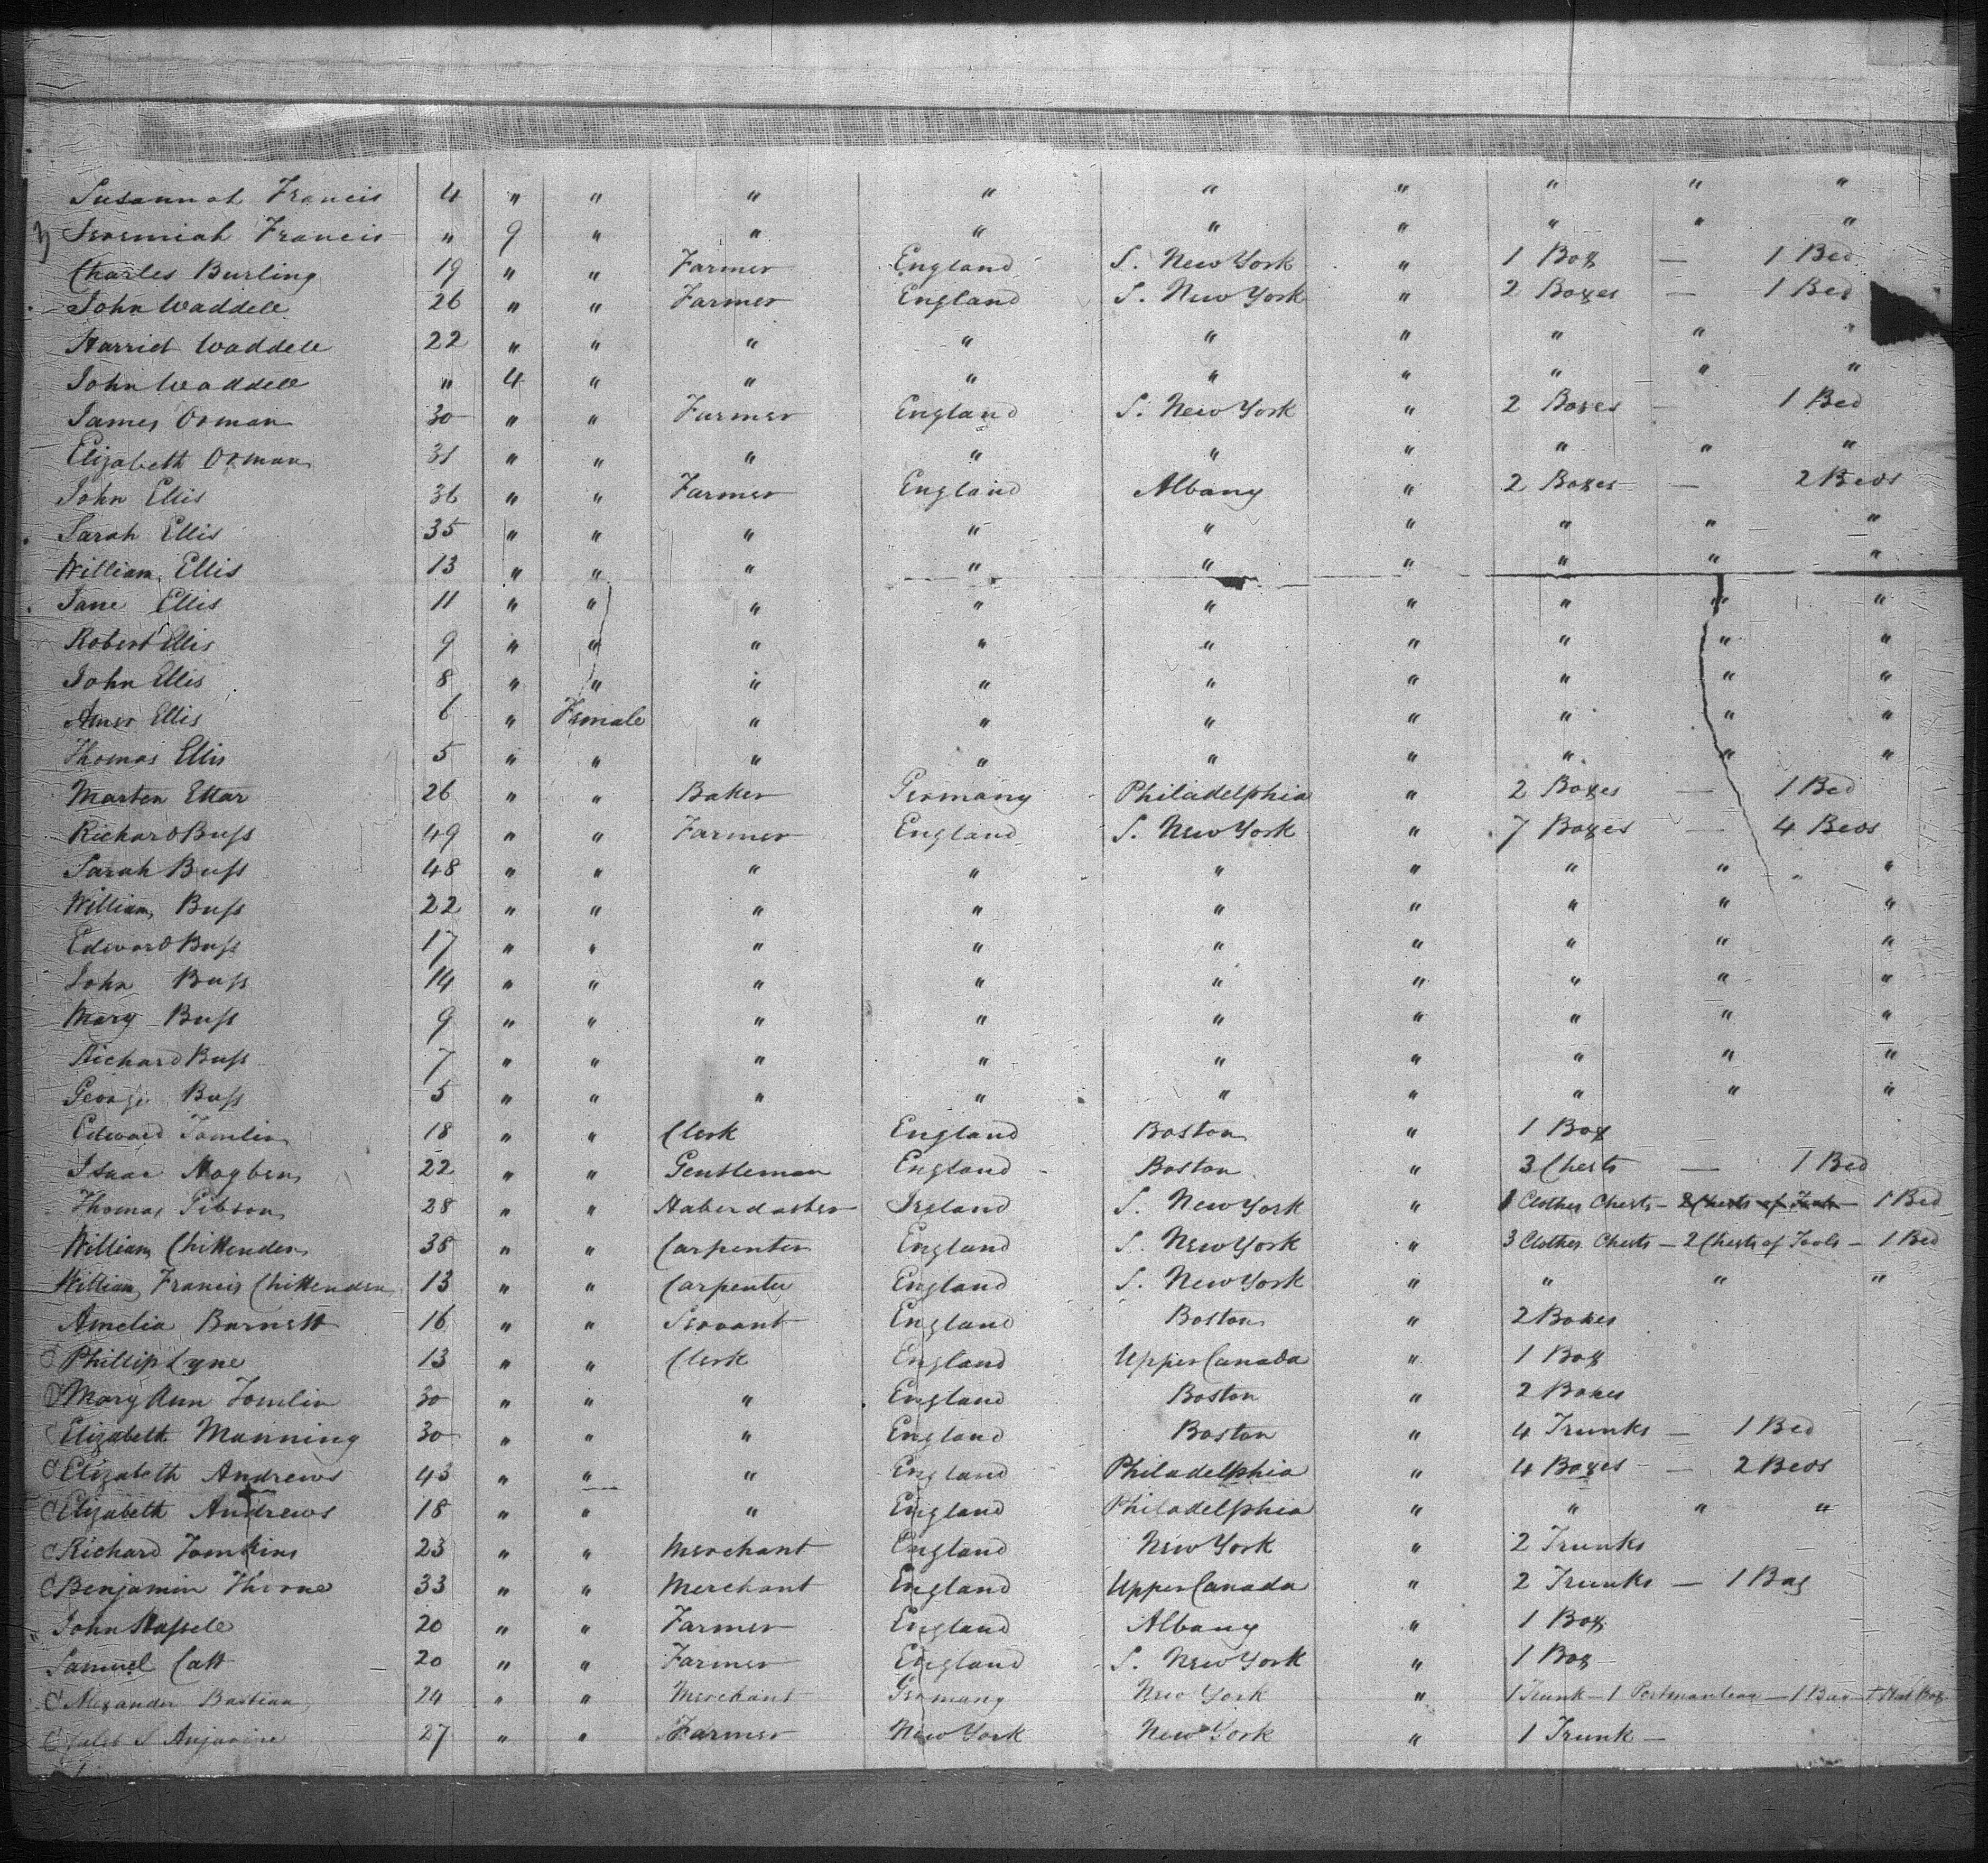 Susannah Francis 4 " " " " " " " " "
Jeremiah Francis " 9 " " " " " " " "
Charles Burling 19 " " Farmer England S. New York " 1 Box — 1 Bed
John Waddell 26 " " Farmer England S. New York " 2 Boxes — 1 Bed
Harriet Waddell 22 " " " " " " " " "
John Waddell " 4 " " " " " " " "
James Orman 30 " " Farmer England S. New York " 2 Boxes — 1 Bed
Elizabeth Orman 31 " " " " " " " " "
John Ellis 36 " " Farmer England Albany " 2 Boxes — 2 Beds
Sarah Ellis 35 " " " " " " " " "
William Ellis 13 " " " " " " " " "
Jane Ellis 11 " " " " " " " " "
Robert Ellis 9 " " " " " " " " "
John Ellis 8 " " " " " " " " "
Ellis 6 " Female " " " " " " "
Thomas Ellis 5 " " " " " " " " "
Marten Ettar 26 " " Baker Germany Philadelphia " 2 Boxes — 1 Bed
Richard Buss 49 " " Farmer England S. New York " 7 Boxes — 4 Beds
Sarah Buss 48 " " " " " " " " "
William Buss 22 " " " " " " " " "
Edward Buss 17 " " " " " " " " "
John Buss 14 " " " " " " " " "
Mary Buss 9 " " " " " " " " "
Richard Buss 7 " " " " " " " " "
George Buss 5 " " " " " " " " "
Edward Tomlin 18 " " Clerk England Boston " 1 Box
Isaac Mogben 22 " " Gentleman England Boston " 3 Chests — 1 Bed
Thomas Gibson 28 " " Haberdasher Ireland S. New York " 1 Clothes Chests — 2 Chests of Tools — 1 Bed
William Chittenden 38 " " Carpenter England S. New York " 3 Clothes Chests — 2 Chests of Tools — 1 Bed
William Francis Chittenden 13 " " Carpenter England S. New York " " " "
Amelia Barnett 16 " " Servant England Boston " 2 Boxes
Phillip Lyne 13 " " Clerk England Upper Canada " 1 Box
Mary Ann Tomlin 30 " " " England Boston " 2 Boxes
Elizabeth Manning 30 " " " England Boston " 4 Trunks — 1 Bed
Elizabeth Andrews 43 " " " England Philadelphia " 4 Boxes — 2 Beds
Elizabeth Andrews 18 " " " England Philadelphia " " " "
Richard Tomkins 23 " " Merchant England New York " 2 Trunks
Benjamin Thorne 33 " " Merchant England Upper Canada " 2 Trunks — 1 Bag
John 20 " " Farmer England Albany " 1 Box
Samuel Catt 20 " " Farmer England S. New York " 1 Box
Alexander Bastian 24 " " Merchant Germany New York " 1 Trunk — 1 Portmanteau — 1 Bag — 1 Hat Box
Caleb S Anjevine 27 " " Farmer New York New York " 1 Trunk —